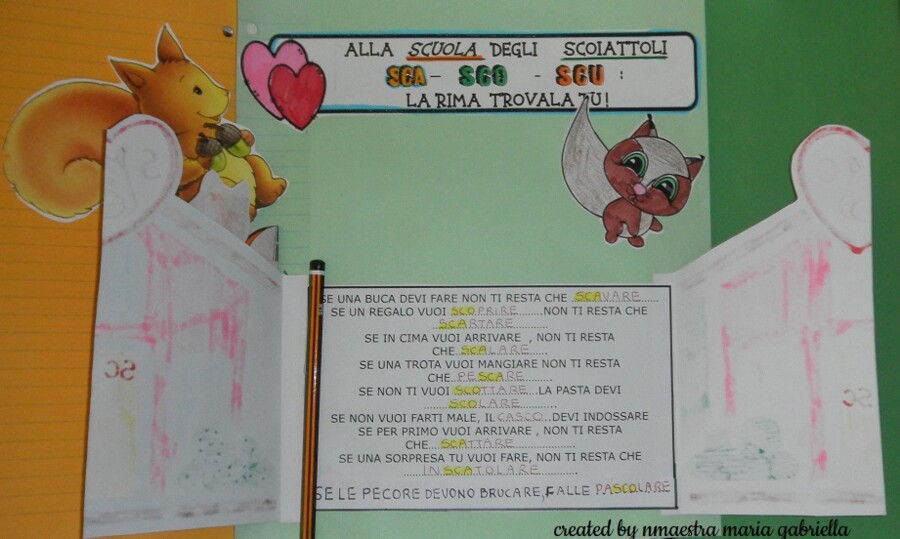 ALLA SCUOLA DEGLI SCOIATTOLI
SCA - SCO - SCU :
LA RIMA TROVALA TU!
SE UNA BUCA DEVI FARE NON TI RESTA CHE SCAVARE
SE UN REGALO VUOI SCOPRIRE NON TI RESTA CHE
SCARTARE
SE IN CIMA VUOI ARRIVARE , NON TI RESTA
CHE SCALARE
SE UNA TROTA VUOI MANGIARE NON TI RESTA
CHE PESCARE
SE NON TI VUOI SCOTTARE LA PASTA DEVI
SCOLARE
SE NON VUOI FARTI MALE, IL CASCO DEVI INDOSSARE
SE PER PRIMO VUOI ARRIVARE , NON TI RESTA
CHE SCATTARE
SE UNA SORPRESA TU VUOI FARE, NON TI RESTA CHE
INSCATOLARE
SE LE PECORE DEVONO BRUCARE, FALLE PASCOLARE
SC
SC
created by nmaestra maria gabriella